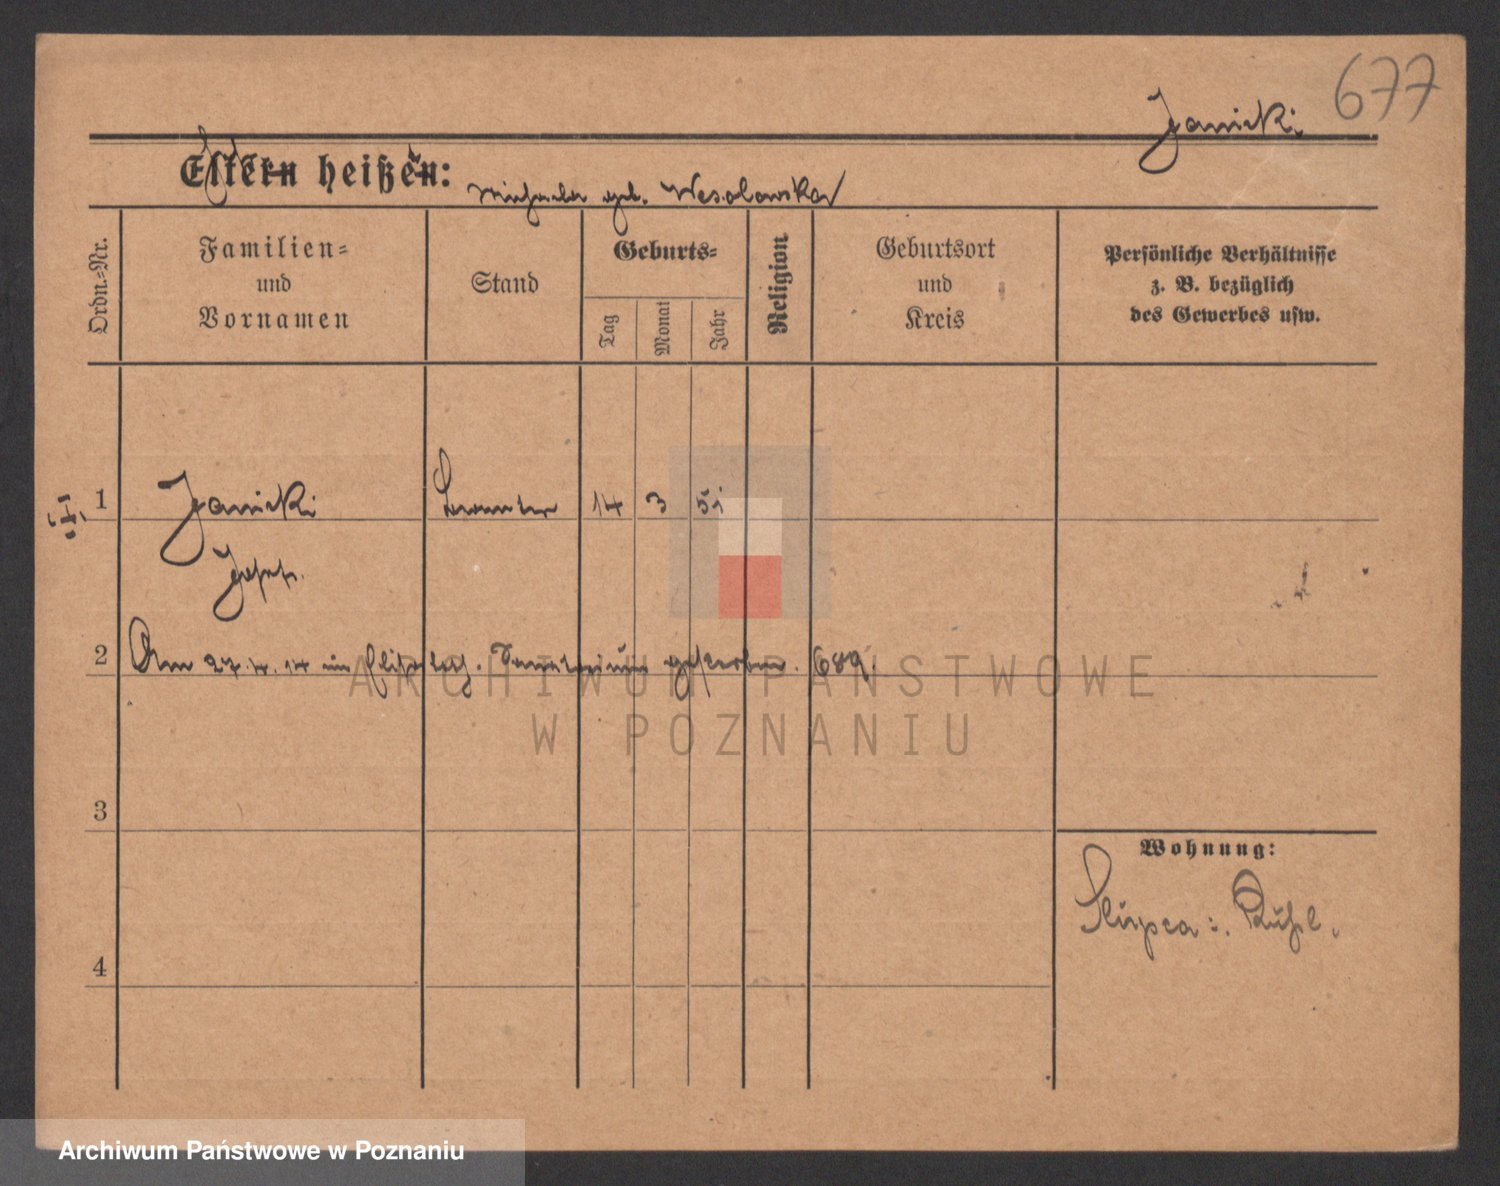 677
Janicki
Eltern heißen:
geb. Wesolowska
Ordn.=Nr.
Familien=
und
Vornamen
Stand
Geburts=
Tag
Monat
Jahr
Religion
Geburtsort
und
Kreis
Persönliche Verhältnisse
z. B. bezüglich
des Gewerbes usw.
1
Janicki
14 3 51
Josef.
2
Am 27.4.14 im gestorben. 689.
ARCHIWUM PAŃSTWOWE
W POZNANIU
3
Wohnung:
Slupca: Rußl.
4
Archiwum Państwowe w Poznaniu